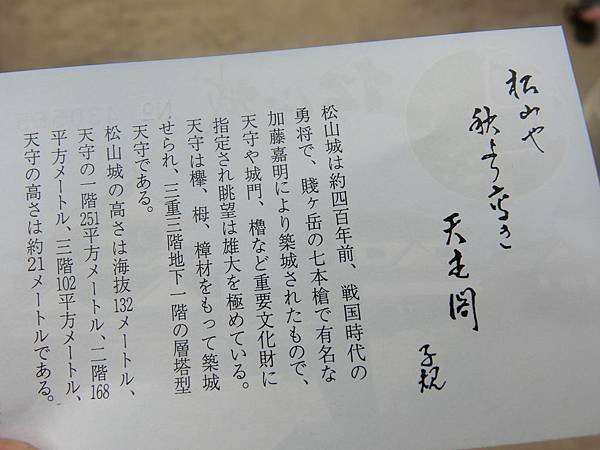 松山や
秋より高き
天主閣
子規
松山城は約四百年前、戦国時代の
勇将で、賤ヶ岳の七本槍で有名な
加藤嘉明により築城されたもので、
天守や城門、櫓など重要文化財に
指定され眺望は雄大を極めている。
天守は欅、栂、樟材をもって築城
せられ、三重三階地下一階の層塔型
天守である。
松山城の高さは海抜132メートル、
天守の一階251平方メートル、二階168
平方メートル、三階102平方メートル、
天守の高さは約21メートルである。